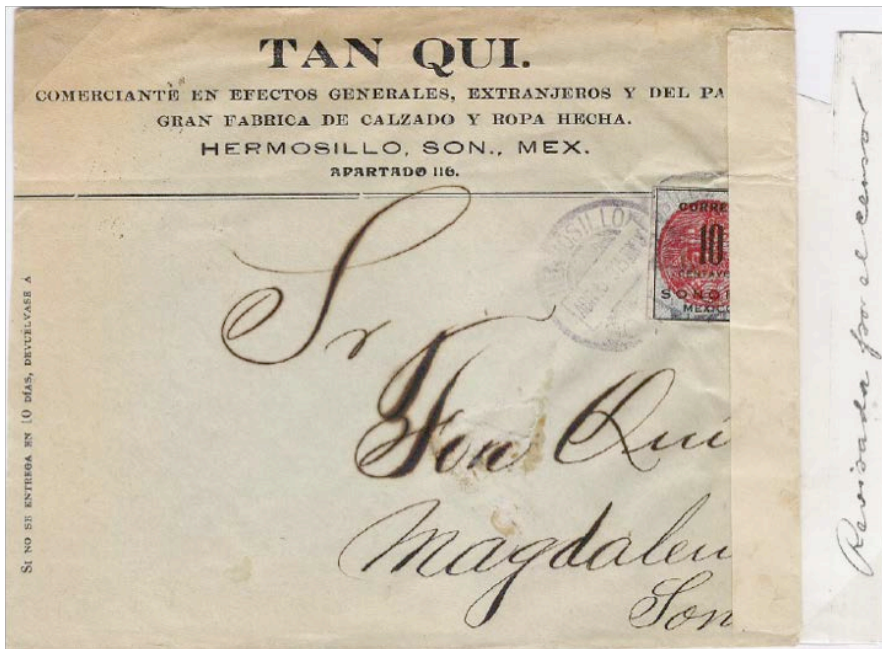 TAN QUI.
COMERCIANTE EN EFECTOS GENERALES, EXTRANJEROS Y DEL PA
GRAN FABRICA DE CALZADO Y ROPA HECHA.
HERMOSILLO, SON., MEX.
APARTADO 116.
SI NO SE ENTREGA EN 10 DÍAS, DEVUELVASE A
CORRE
10
CENTAV
SONOR
MEXICO
Sr
Fon Qui
Magdalen
Son
Revisada por el censor